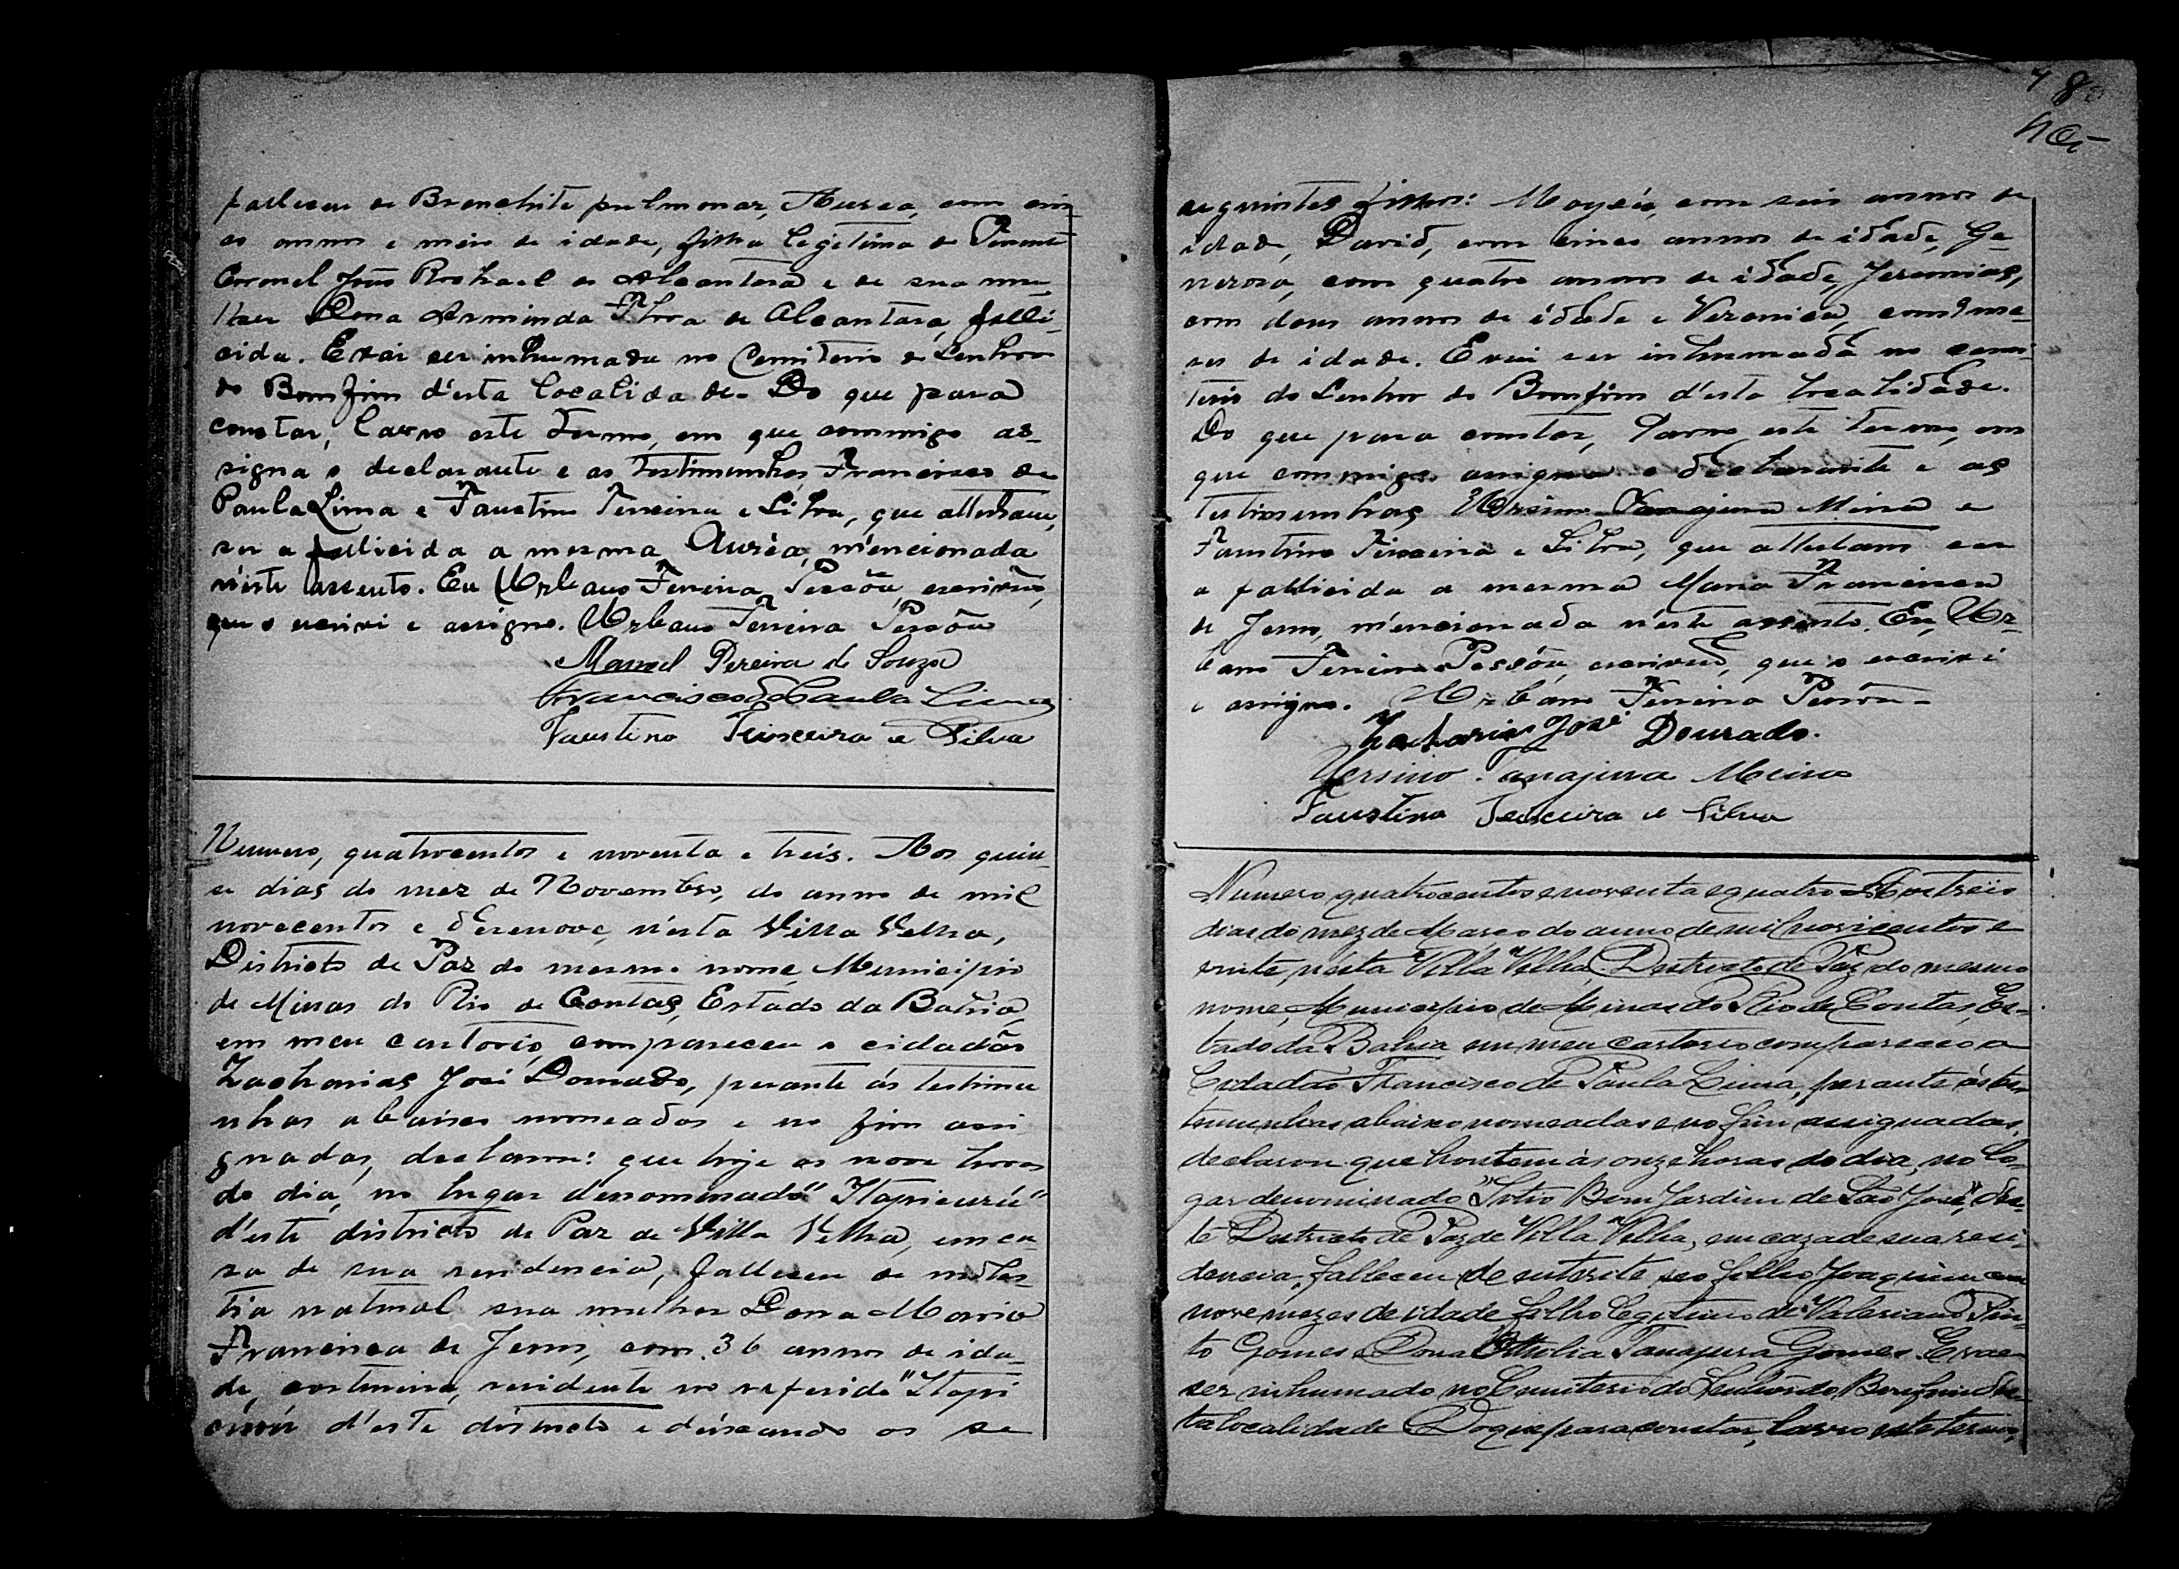 falleceu de Bronchite pulmonar, Aurea, com cin-
co annos e meio de idade, filha legitima do Tenente
Coronel João Raphael de Alcantara e de sua mu-
lher Dona Arminda Flora de Alcantara, falli-
cida. E vai ser inhumada no Cemiterio do Senhor
do Bomfim d'esta localidade. Do que para
constar, lavro este termo, em que commigo as-
signa o declarante e as testimunhas Francisco de
Paula Lima e Faustino Teixeira e Silva, que attestam,
ser a fallicida a mesma Aurea, mencionada
n'este assento. Eu Urbano Ferreira Pessôa, escrivão,
que o escrivi e assigno. Urbano Ferreira Pessôa
Manoel Pereira de Souza
Francisco de Paula Lima
Faustino Teixceira e Silva
Numero, quatrocentos e noventa e treis. Aos quin-
se dias do mez de Novembro, do anno de mil
novecentos e dezenove, n'esta Villa Velha,
Districto de Paz do mesmo nome, Municipio
de Minas do Rio de Contas, Estado da Bahia,
em meu cartorio, compareceu o cidadão
Zacharias José Dourado, perante ás testimu
nhas abaixo nomeadas e no fim assi
gnadas, declarou: que hoje as nove horas
do dia, no lugar denominado "Itapicurú"
d'este districto de Paz de Villa Velha, em ca-
sa de sua rendencia, falleceu de moles-
tia natural sua mulher Dona Maria
Francisca de Jesus, com 36 annos de ida-
de, costureira, residente no referido "Itapi
curú d'este districto e deixando os se
48
seguintes filhos: Moysés, com seis annos de
idade, David, com cinco annos de idade, Ge-
nerosa, com quatro annos de idade, Jeremias,
com dous annos de idade e Veronica, com 9 me-
ses de idade. E vai ser inhumada no cemi-
terio do Senhor do Bomfim d'esta localidade.
Do que para constar, lavro este termo, em
que commigo assigna o declarante e as
testimunhas Ursino Tanajura Meira e
Faustino Teixeira e Silva, que attestam ser
a fallicida a mesma Maria Francisca
de Jesus, mencionada n'este assento. Eu, Ur-
bano Ferreira Pessôa, escrivão, que o escrivi
e assigno. Urbano Ferreira Pessôa
Zacharias José Dourado.
Ursino Tanajura Meira
Faustino Teixceira e Silva
Numero quatrocentos e noventa e quatro. Aos treis
dias do mez de Março do anno de mil novicentos e
vinte, n'esta Villa Velha, Destricto de Paz do mesmo
nome, Municipio de Minas do Rio de Contas, Es-
tado da Bahia em meu cartorio compareceo o
Cidadão Francisco de Paula Lima, perante ás tes-
temunhas abaixo nomeadas e no fim assignadas,
declarou que hontem ás onze horas do dia, no lo-
gar denominado "Sitio Bom Jardim de São José," des-
te Destricto de Paz de Villa Velha, em caza de sua resi-
dencia, falleceu de enterite seo filho Joaquim com
nove mezes de idade filho legitimo de Valeriano Pin-
to Gomes e Dona Etholia Tanajura Gomes. E vae
ser inhumado no Cemiterio do Senhor do Bomfim des-
ta localidade Do que para constar, lavro este termo,